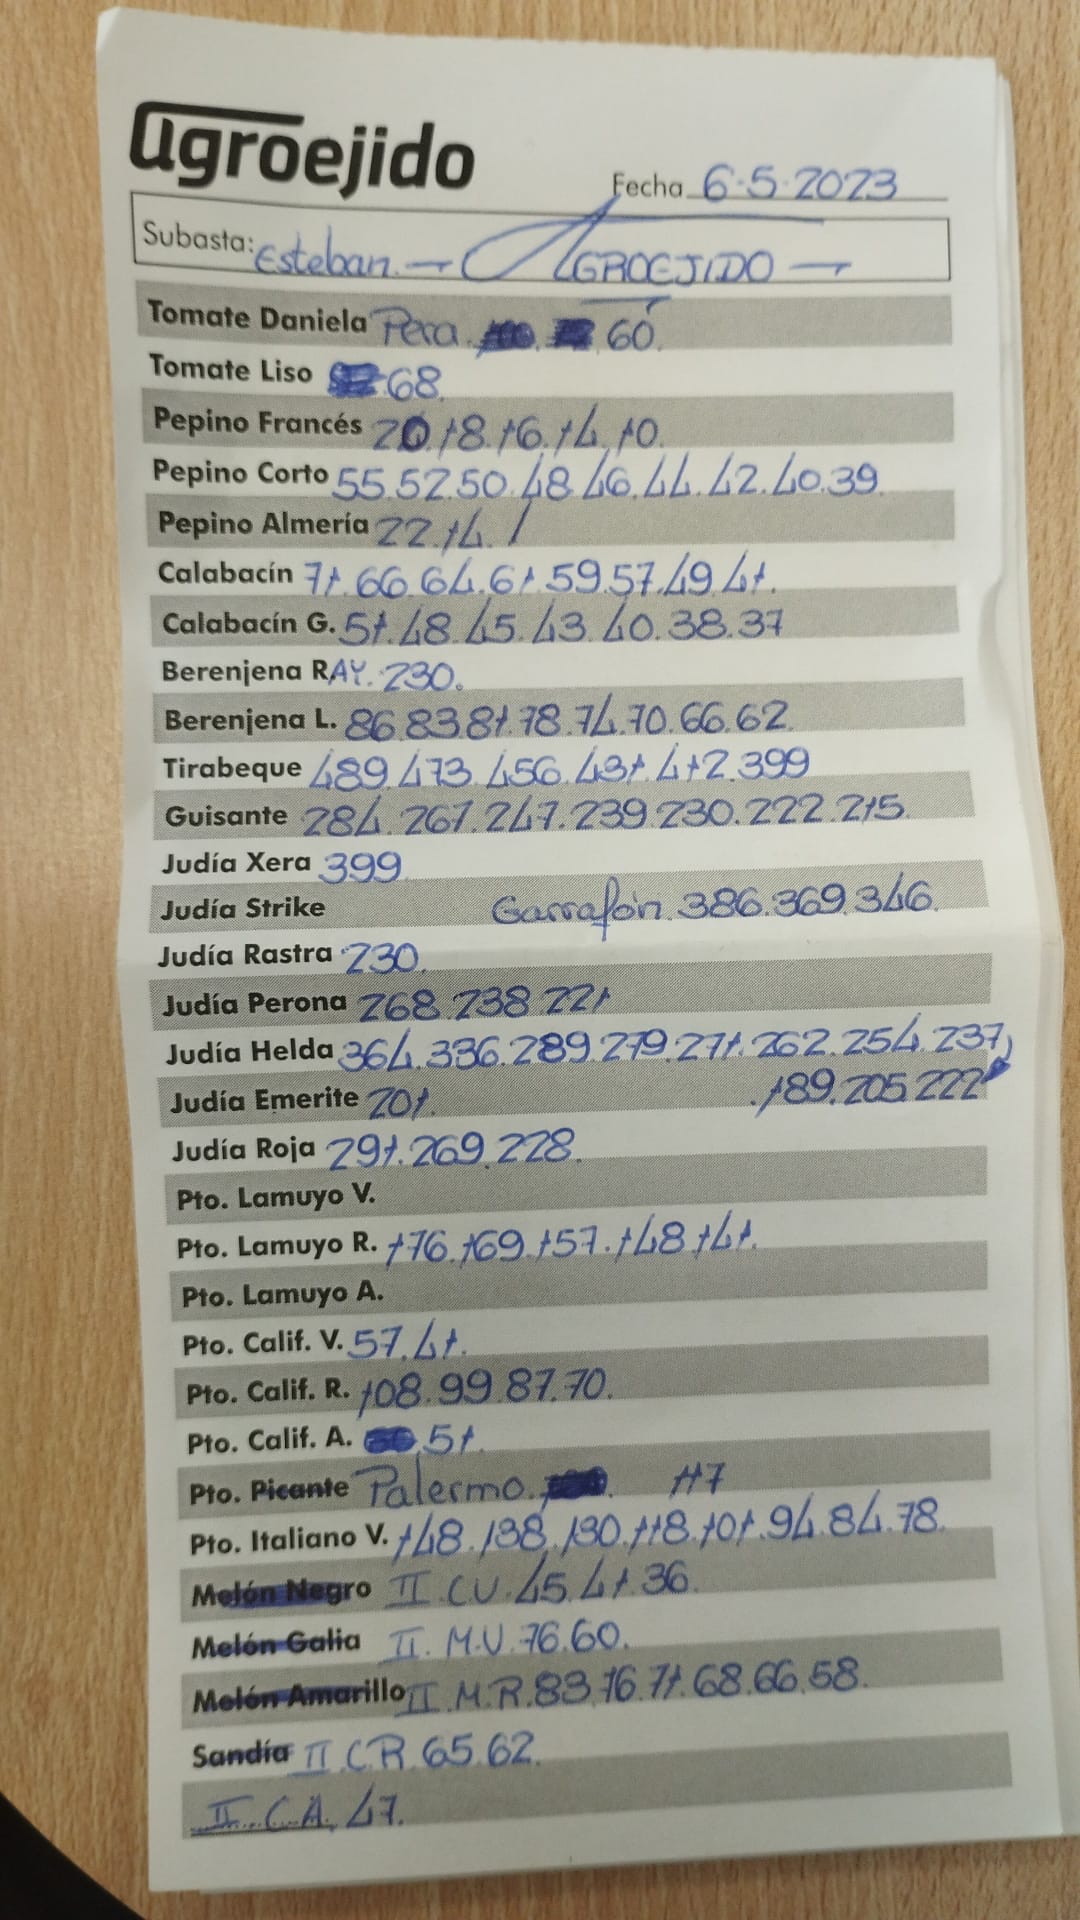 agroejido
Fecha 6.5.2023
Subasta: Esteban. — AGROEJIDO —
Tomate Daniela Pera. 60.
Tomate Liso 68.
Pepino Francés 20.18.16.14.10.
Pepino Corto 55.52.50.48.46.44.42.40.39
Pepino Almería 22.14. /
Calabacín 71.66.64.61.59.57.49.41.
Calabacín G. 51.48.45.43.40.38.37
Berenjena RAY. 230.
Berenjena L. 86.83.81.78.74.70.66.62.
Tirabeque 489.473.456.431.412.399
Guisante 284.267.247.239.230.222.215.
Judía Xera 399
Judía Strike Garrafón. 386.369.346.
Judía Rastra 230.
Judía Perona 268.238.221
Judía Helda 364.336.289.279.271.262.254.237
Judía Emerite 201. .189.205.222
Judía Roja 291.269.228.
Pto. Lamuyo V.
Pto. Lamuyo R. 176.169.157.148.141.
Pto. Lamuyo A.
Pto. Calif. V. 57.41.
Pto. Calif. R. 108.99.87.70.
Pto. Calif. A. 51.
Pto. Picante Palermo. 117
Pto. Italiano V. 148.138.130.118.101.94.84.78.
Melón Negro II.CV.45.41.36.
Melón Galia II.M.V.76.60.
Melón Amarillo II.M.R.83.76.71.68.66.58.
Sandía II.C.R.65.62.
II.C.A.47.